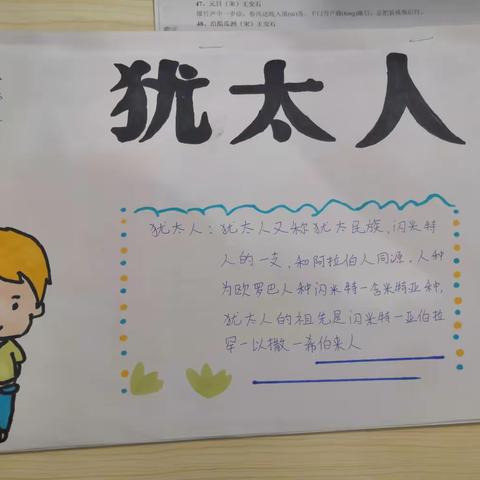 47、元日（宋）王安石
爆竹声中一岁除，春风送暖入屠(tú)苏。千门万户曈(tóng)曈日，总把新桃换旧符。
48、泊船瓜洲（宋）王安石
犹太人
犹太人：犹太人又称犹太民族，闪米特
人的一支，和阿拉伯人同源，人种
为欧罗巴人种闪米特一含米特亚种，
犹太人的祖先是闪米特一亚伯拉
罕一以撒一希伯来人